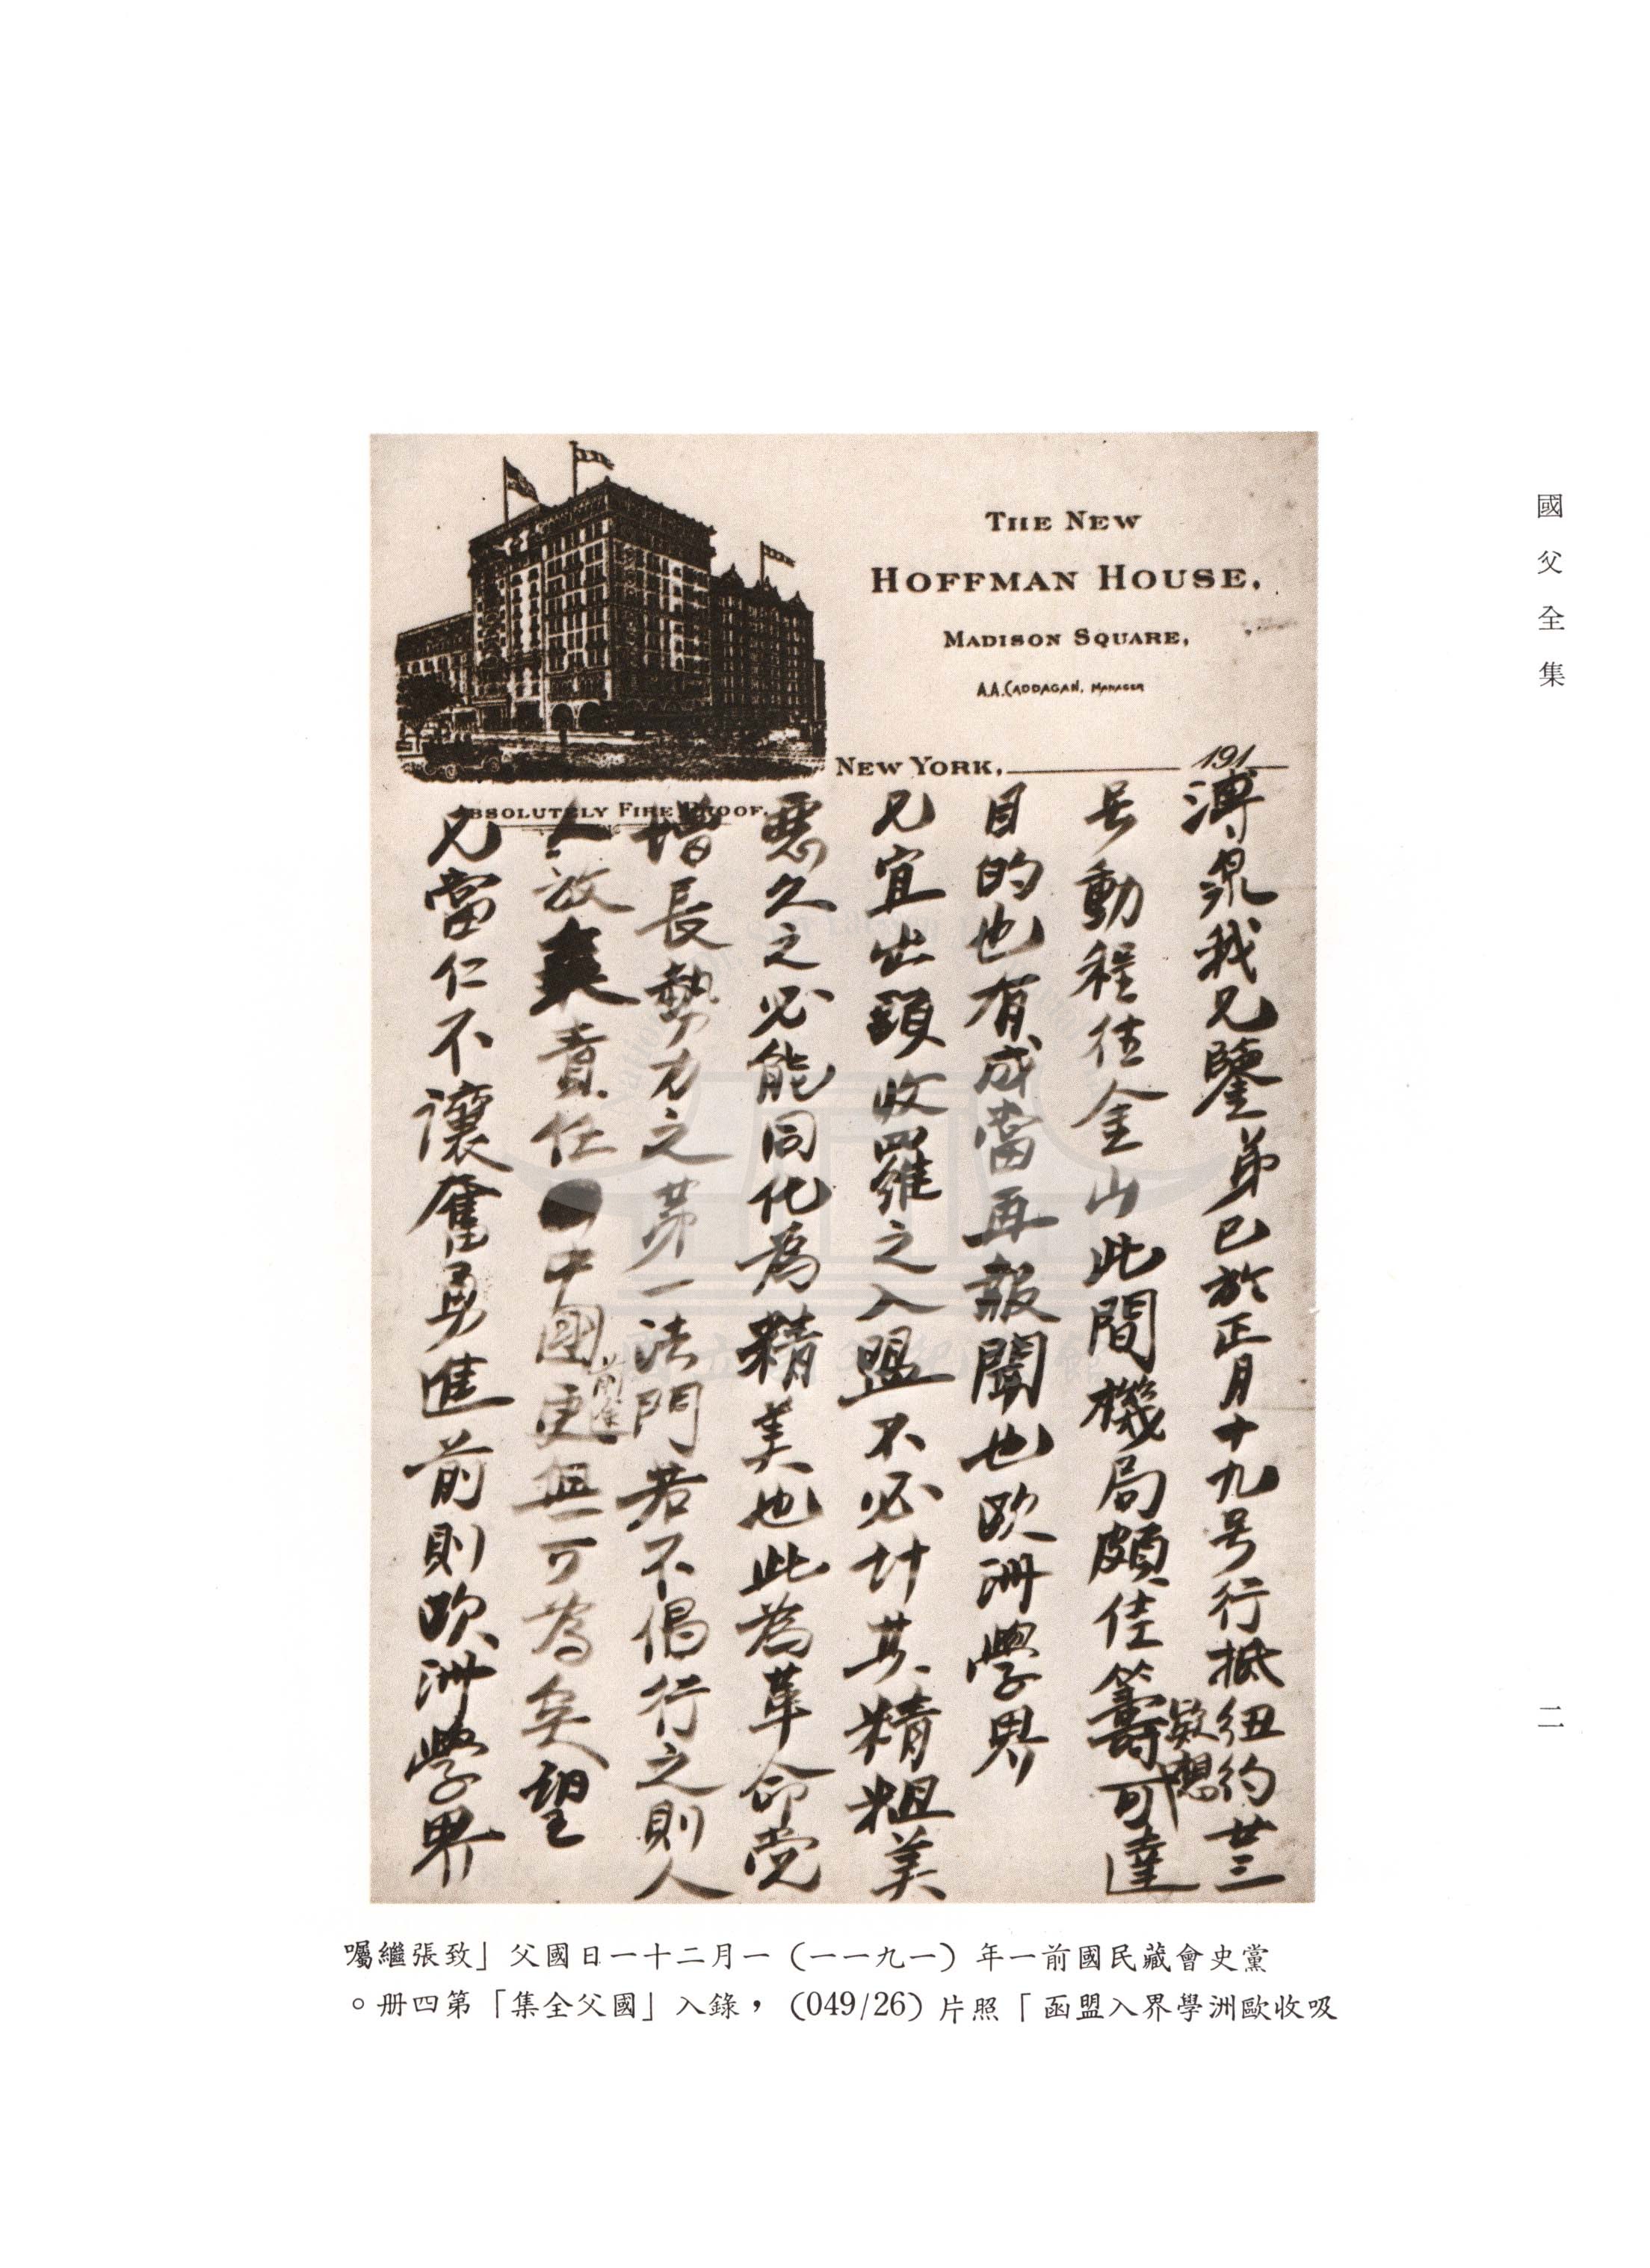 國父全集
二
THE NEW
HOFFMAN HOUSE,
MADISON SQUARE,
A.A. CADDAGAN, MANAGER
NEW YORK, 191
ABSOLUTELY FIRE PROOF.
溥泉我兄鑒弟已於正月十九号行抵紐約廿三
号動程往金山此間機局頗佳籌款想可達
目的也有成當再報聞也欧洲學界
兄宜出頭收羅之入盟不必计其精粗美
惡久之必能同化為精美也此為革命党
增長勢力之苐一法門若不倡行之則人
人放棄責任中國前途更無可為矣望
兄當仁不讓奮勇進前則欧洲學界
黨史會藏民國前一年(一九一一)一月二十一日國父「致張繼囑
吸收歐洲學界入盟函」照片(049/26),錄入「國父全集」第四册。